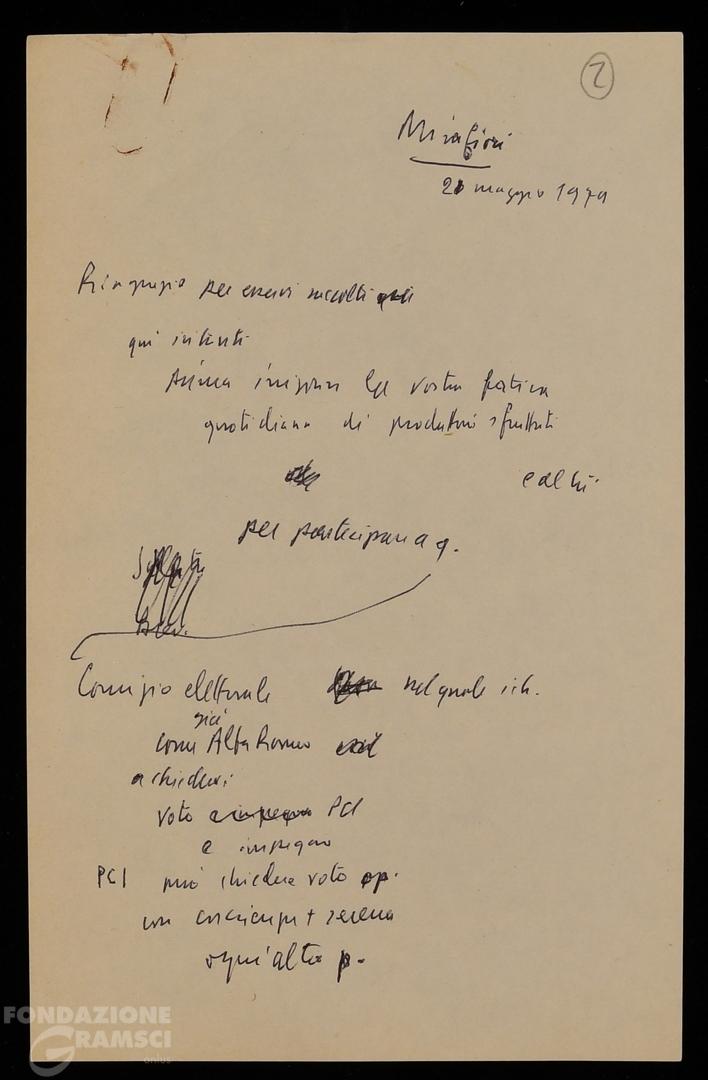 2
Mirafiori
21 maggio 1979
Ringrazio per esservi raccolti
qui intenti
vostra fatica
quotidiana di produttori sfruttati
e altri
per partecipare a q.
Comizio elettorale nel quale
già
come Alfa Romeo
a chiedervi
voto e impegno PCI
e impegno
PCI può chiedere voto op.
con coscienza + serena
ogni altro p.
FONDAZIONE
GRAMSCI
onlus